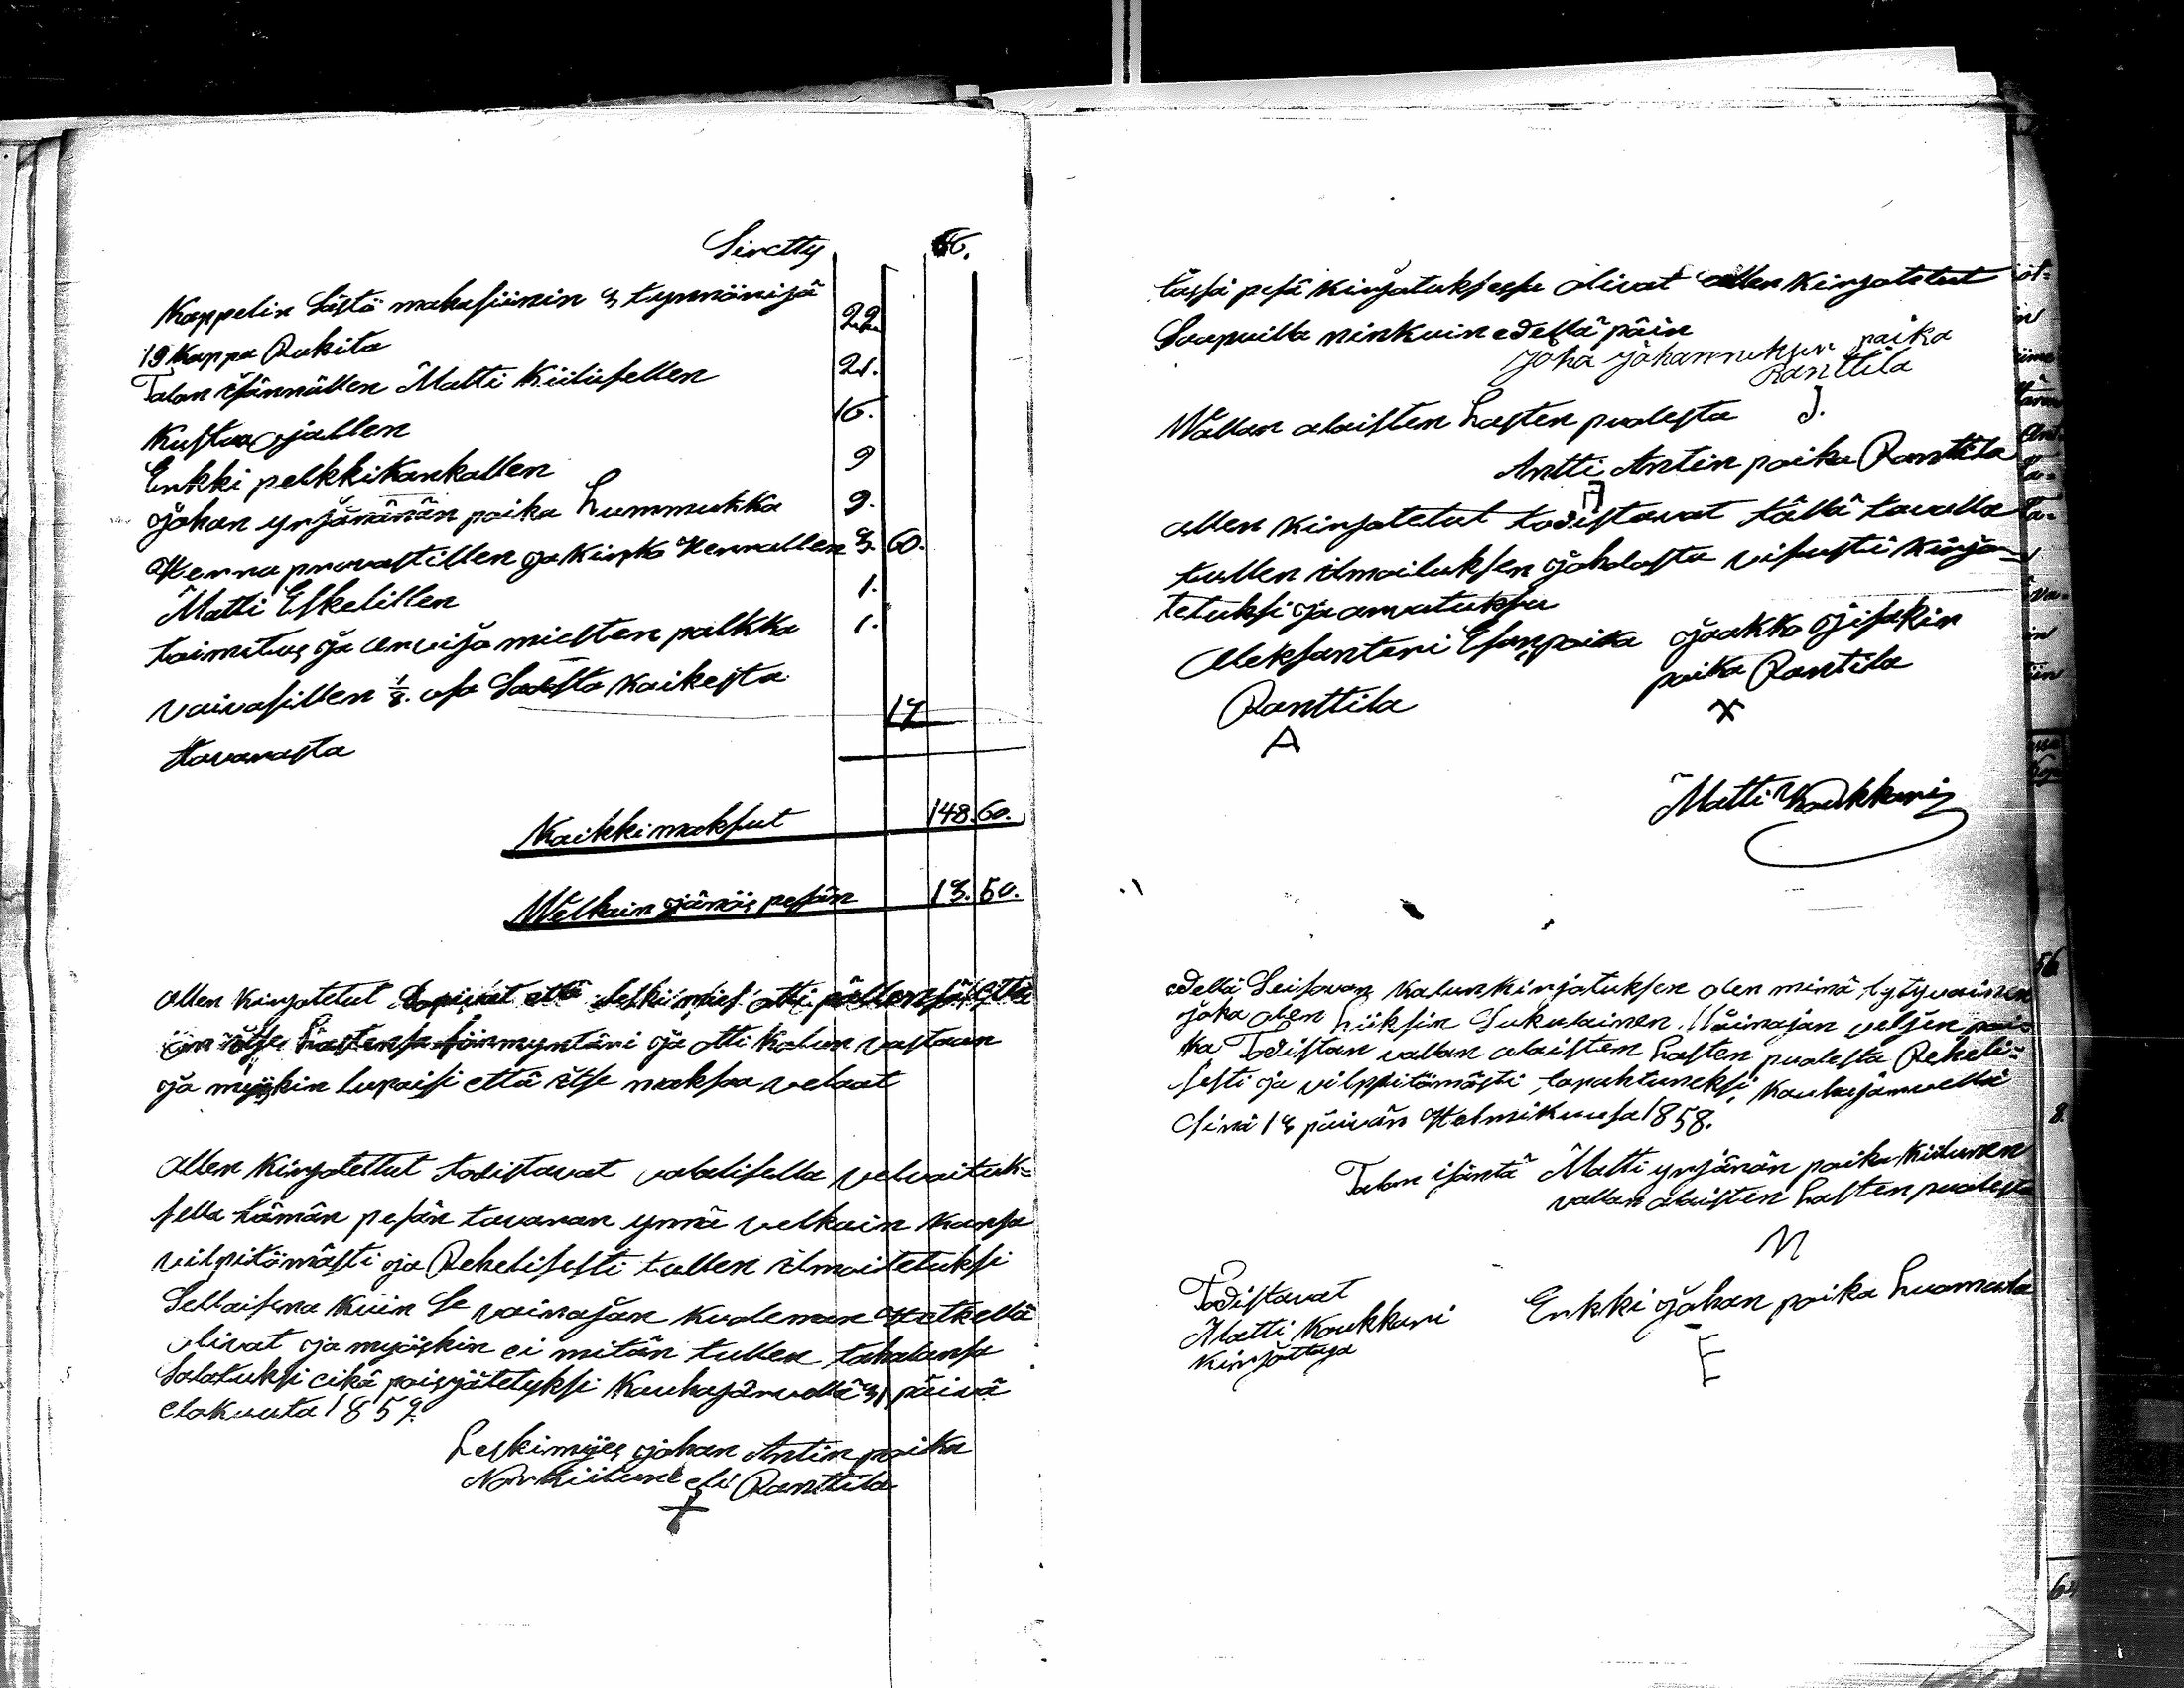 Siretty 66.
Kappelin Lästö makasiinin 3 tynnöriä
19 Kappa Rukita 22
Talon isännällen Matti Kiilusellen 21.
Kustaa ojallen 16.
Erkki pelkkikankallen 9
Johan yrjänänän poika Lummukka 9.
Herra provastillen ja Kirko Herrallen 3. 60.
Matti Eskelillen 1.
toimitus ja arvio miesten palkka 1.
vaivasillen 1/8. osa Sadosta kaikesta
tavarasta 17
Kaikki maksut 148. 60.
Welkain jänöis pesän 13. 50.
Allen Kirjotetut Sopivat että leski mies otti
itse Lastensa myntäri ja otti Kalun vastaan
ja myöskin lupaisi että itse maksaa velaat
Allen Kirjotettut todistavat valalisella velvaituk=
sella tämän pesän tavaran ynnä velkain kansa
vilpitömästi ja Rehelisesti tullen ilmoitetuksi
Sellaisena kuin Se vainajan kuoleman Hetkellä
olivat ja myöskin ei mitän tullen tahalansa
Salatuksi eikä poisjätetyksi Kauhajärvellä 31 päivä
elokuuta 1857.
Leskimyes johan Antin poika
Norkiilune eli Ranttila
X
tässä pesä kirjotuksessa olivat allen Kirjotetut
Saapuilla ninkuin edellä päin
Joha Johannuksen poika
Ranttila
J.
Wallan alaisten Lasten puolesta
Antti Antin poika Ranttila
A
allen kirjotetut todistavat tällä tavalla
tullen ilmoituksen johdosta visusti kirjo=
tetuksi ja arvatuksa
Aleksanteri Esan poika
Ranttila
A
Jaakko Jisakin
poika Rantila
X
Matti Koukkari
edellä Seisovan kalunkirjotuksen olen minä tytyvainen
joka olen Liiksin Sukulainen. Wainajan veljen poi=
ka Todistan vallan alaisten Lasten puolesta Reheli=
sesti ja vilppitömästi tapahtuneksi, Kauhajärvellä
Sinä 13 päivän Helmikuusa 1858.
Talon isäntä Matti yrjänän poika Kiilunen
vallan alaisten Lasten puolesta
M
Todistavat
Matti Koukkari
Kirjottaja
Erkki Johan poika Luomala
E